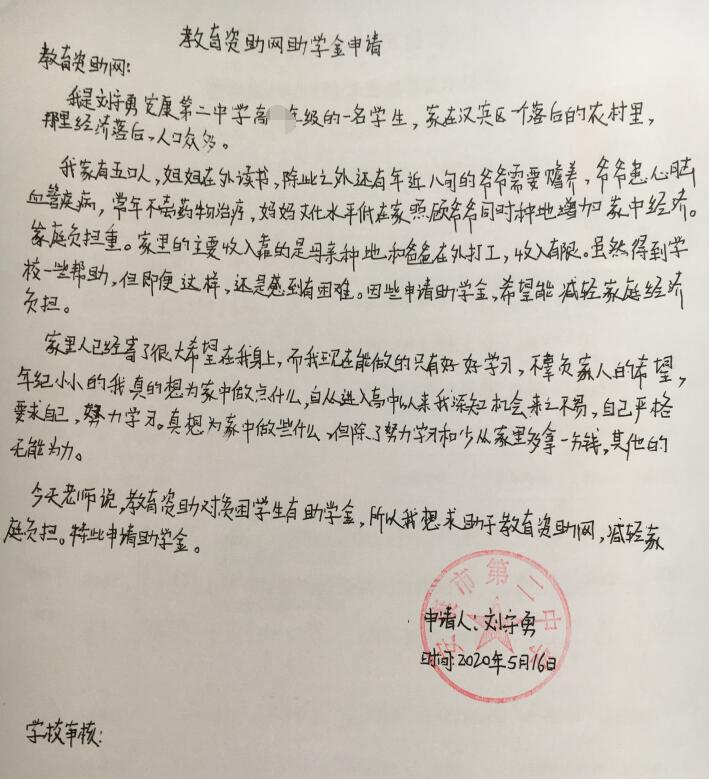 教育资助网助学金申请
教育资助网：
我是刘守勇安康第二中学高 年级的一名学生，家在汉宾区一个落后的农村里，
那里经济落后，人口众多。
我家有五口人，姐姐在外读书，除此之外还有年近八旬的爷爷需要赡养，爷爷患心脑
血管疾病，常年不套药物治疗，妈妈文化水平低在家照顾爷爷同时种地增加家中经济。
家庭负担重。家里的主要收入靠的是母亲种地和爸爸在外打工，收入有限。虽然得到学
校一些帮助，但即便这样，还是感到有困难。因些申请助学金，希望能减轻家庭经济
负担。
家里人已经寄了很大希望在我身上，而我现在能做的只有好好学习，不辜负家人的希望，
年纪小小的我真的想为家中做点什么，自从进入高中以来我深知机会来之不易，自己严格
要求自己，努力学习。真想为家中做些什么，但除了努力学习和少从家里多拿一分钱，其他的
无能为力。
今天老师说，教育资助对贫困学生有助学金，所以我想求助于教育资助网，减轻家
庭负担。特此申请助学金。
安康市第二中学
申请人：刘守勇
时间：2020年5月16日
学校审核：